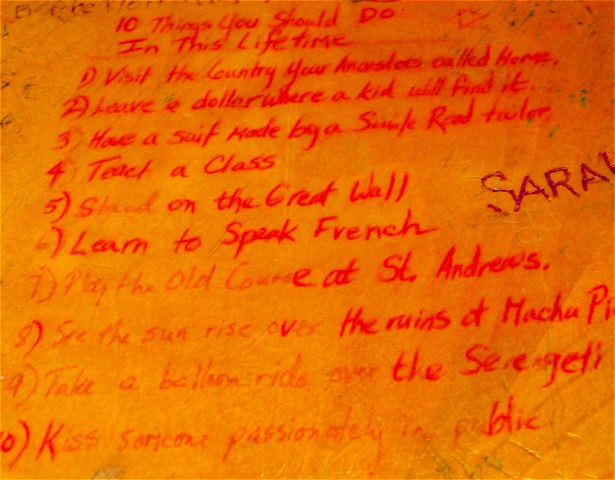 10 Things You Should Do
In This Lifetime
1) Visit the Country Your Ancestors called Home.
2) Leave a dollar where a kid will find it.
3) Have a suit made by a Savile Row tailor.
4) Teach a Class
5) Stand on the Great Wall
SARAH
6) Learn to Speak French
7) Play the Old Course at St. Andrews.
8) See the sun rise over the ruins at Machu Pi
9) Take a balloon ride over the Serengeti
10) Kiss someone passionately in public